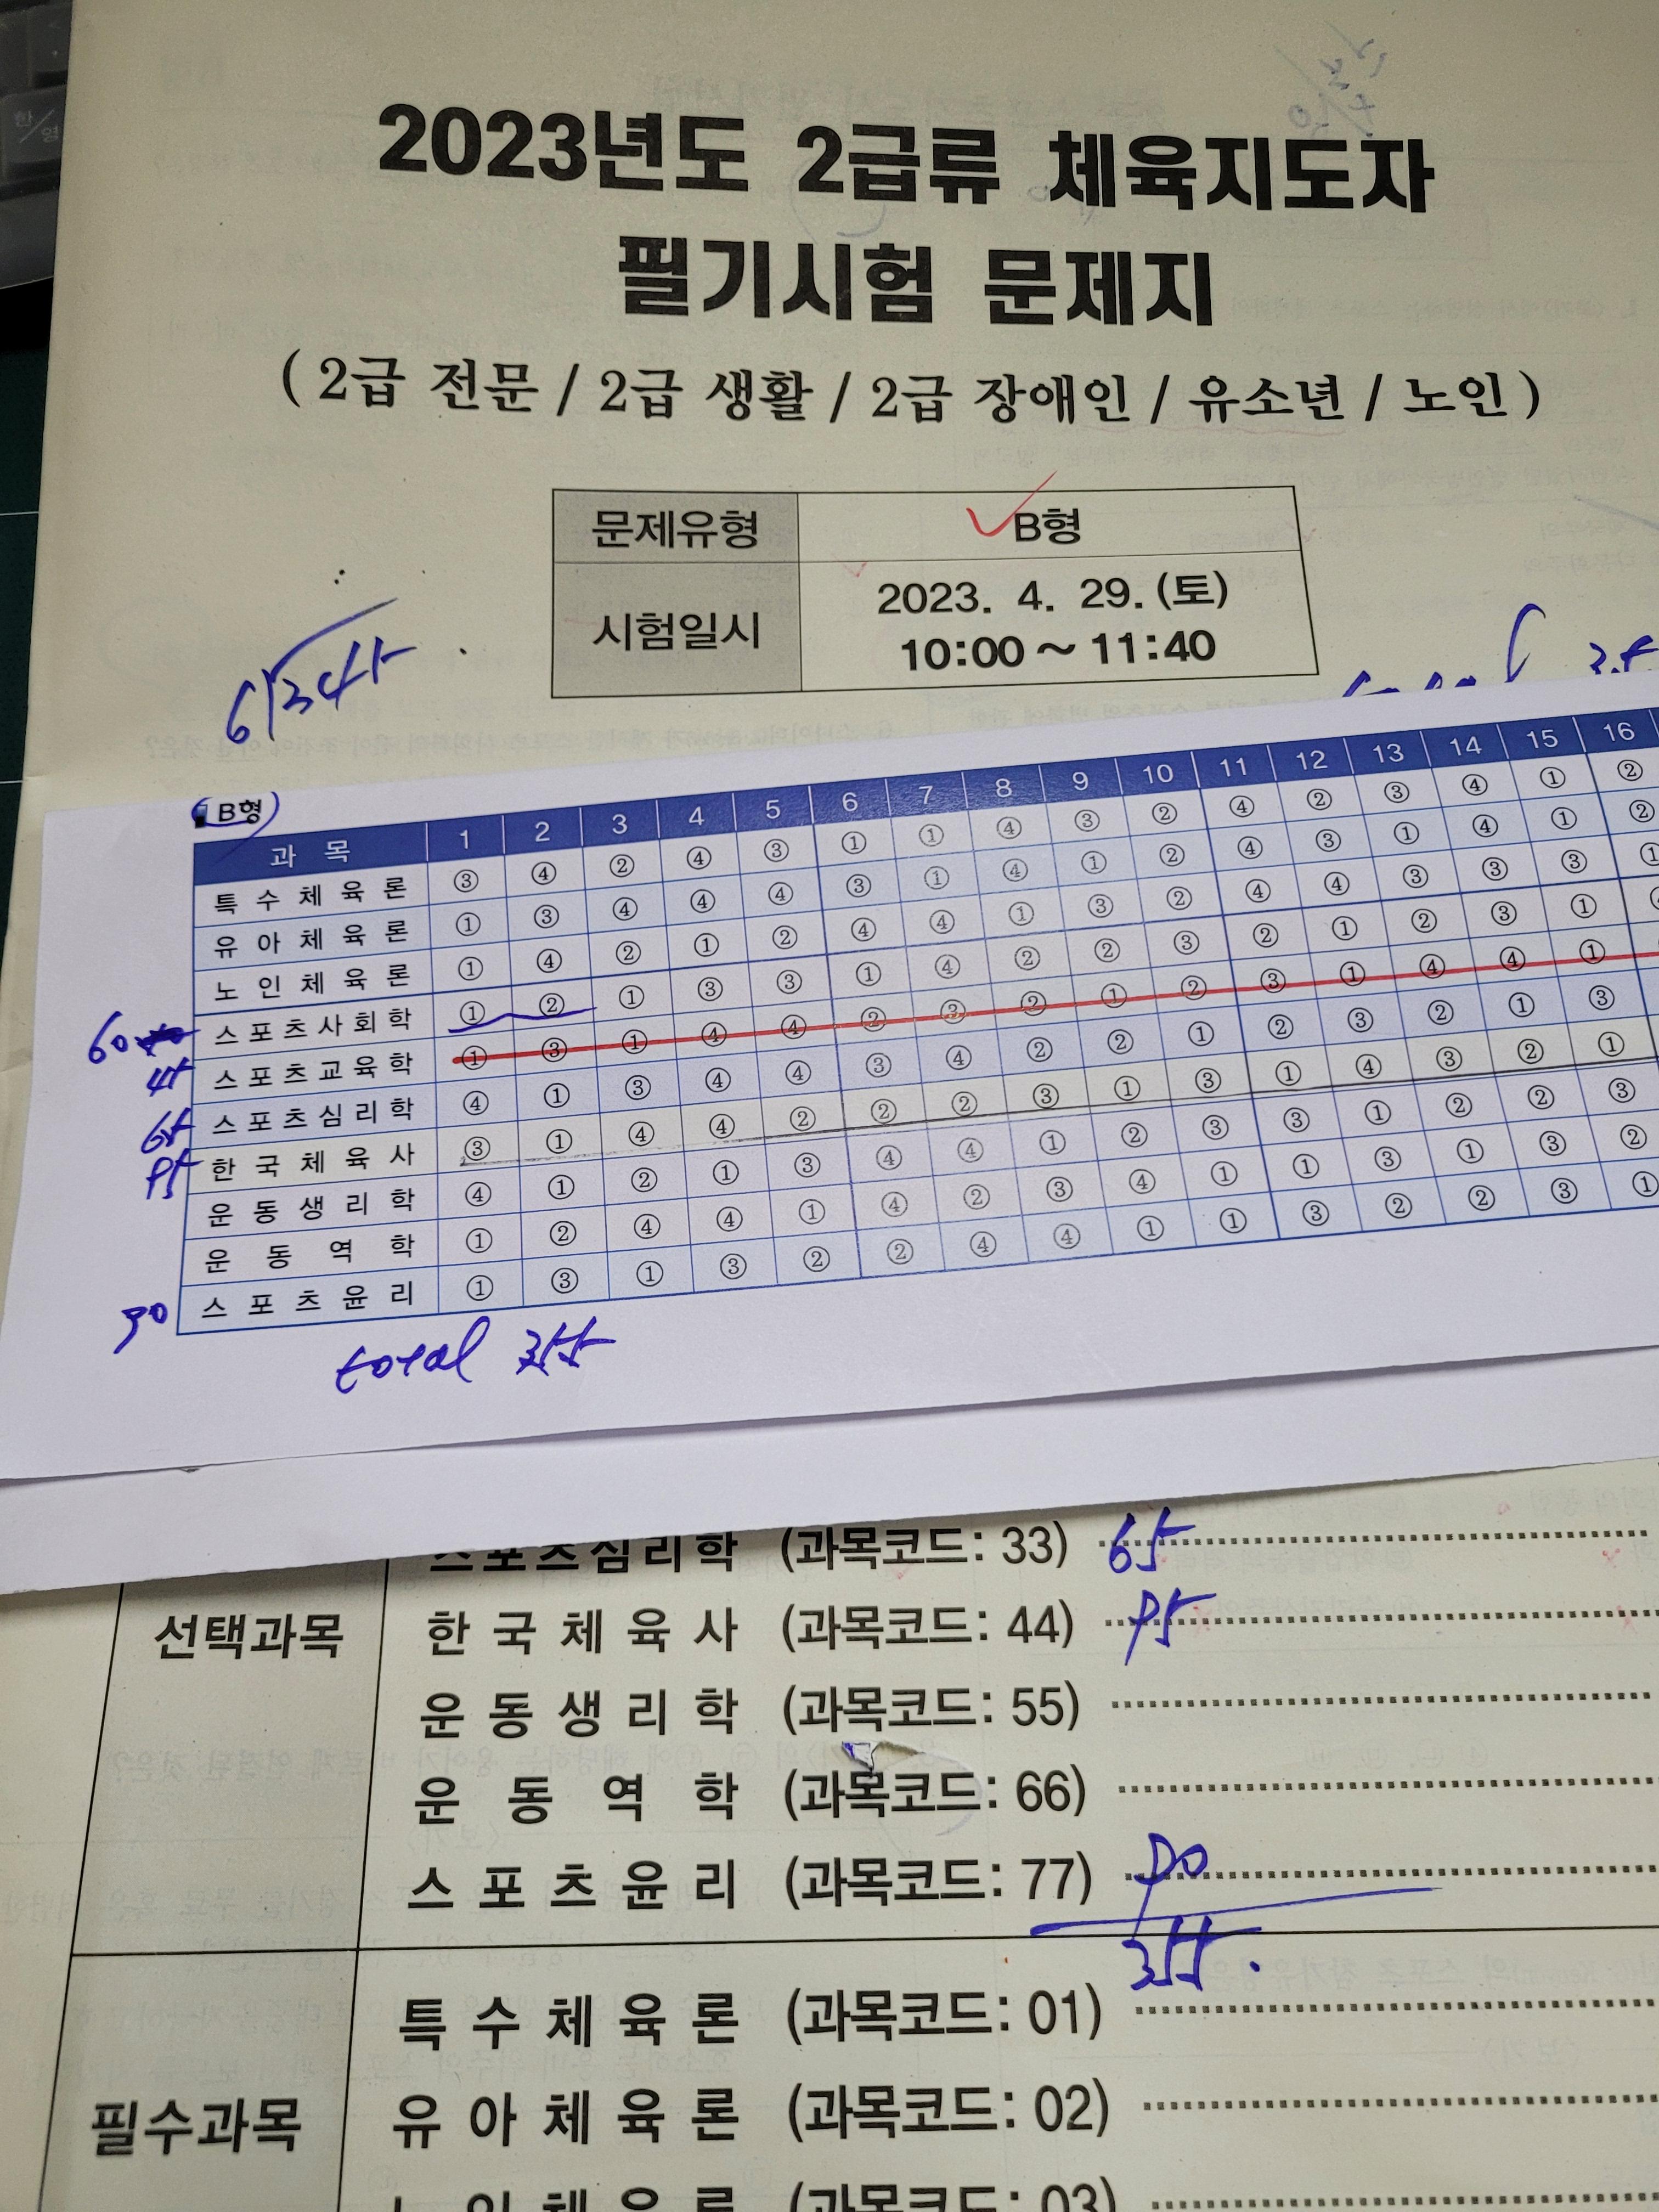 2023년도 2급류 체육지도자
필기시험 문제지
( 2급 전문 / 2급 생활 / 2급 장애인 / 유소년 / 노인 )
문제유형 B형
시험일시 2023. 4. 29. (토)
10:00 ~ 11:40
B형
과 목 1 2 3 4 5 6 7 8 9 10 11 12 13 14 15 16
특 수 체 육 론 ③ ④ ② ④ ③ ① ① ④ ③ ② ④ ② ③ ④ ① ②
유 아 체 육 론 ① ③ ④ ④ ④ ③ ① ④ ① ② ④ ③ ① ④ ① ②
노 인 체 육 론 ① ④ ② ① ② ④ ④ ① ③ ② ④ ④ ③ ③ ③ ①
60 스포츠사회학 ① ② ① ③ ③ ① ④ ② ② ③ ② ① ② ③ ①
45 스포츠교육학 ① ③ ① ④ ④ ② ③ ② ① ② ③ ① ④ ④ ①
65 스포츠심리학 ④ ① ③ ④ ④ ③ ④ ② ② ① ② ③ ② ① ③
95 한 국 체 육 사 ③ ① ④ ④ ② ② ② ③ ① ③ ① ④ ③ ② ①
운 동 생 리 학 ④ ① ② ① ③ ④ ④ ① ② ③ ③ ① ② ② ③
운 동 역 학 ① ② ④ ④ ① ④ ② ③ ④ ① ① ③ ① ③ ②
90 스 포 츠 윤 리 ① ③ ① ③ ② ② ④ ④ ① ① ③ ② ② ③ ①
total 355
스포츠심리학 (과목코드: 33) 65
선택과목
한 국 체 육 사 (과목코드: 44) 95
운 동 생 리 학 (과목코드: 55)
운 동 역 학 (과목코드: 66)
스 포 츠 윤 리 (과목코드: 77) 90
355.
특 수 체 육 론 (과목코드: 01)
필수과목
유 아 체 육 론 (과목코드: 02)
노 인 체 육 론 (과목코드: 03)